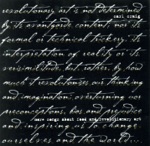 revolutionary art is not determined
carl craig
by its avantgarde content, nor its
formal or technical trickery, its
interpretation of reality or its
verisimilitude, but, rather, by how
much it revolutionizes our thinking
and imagination; overturning our
preconceptions, bias and prejudice
more songs about food and revolutionary art
and inspiring us to change
ourselves and the world...